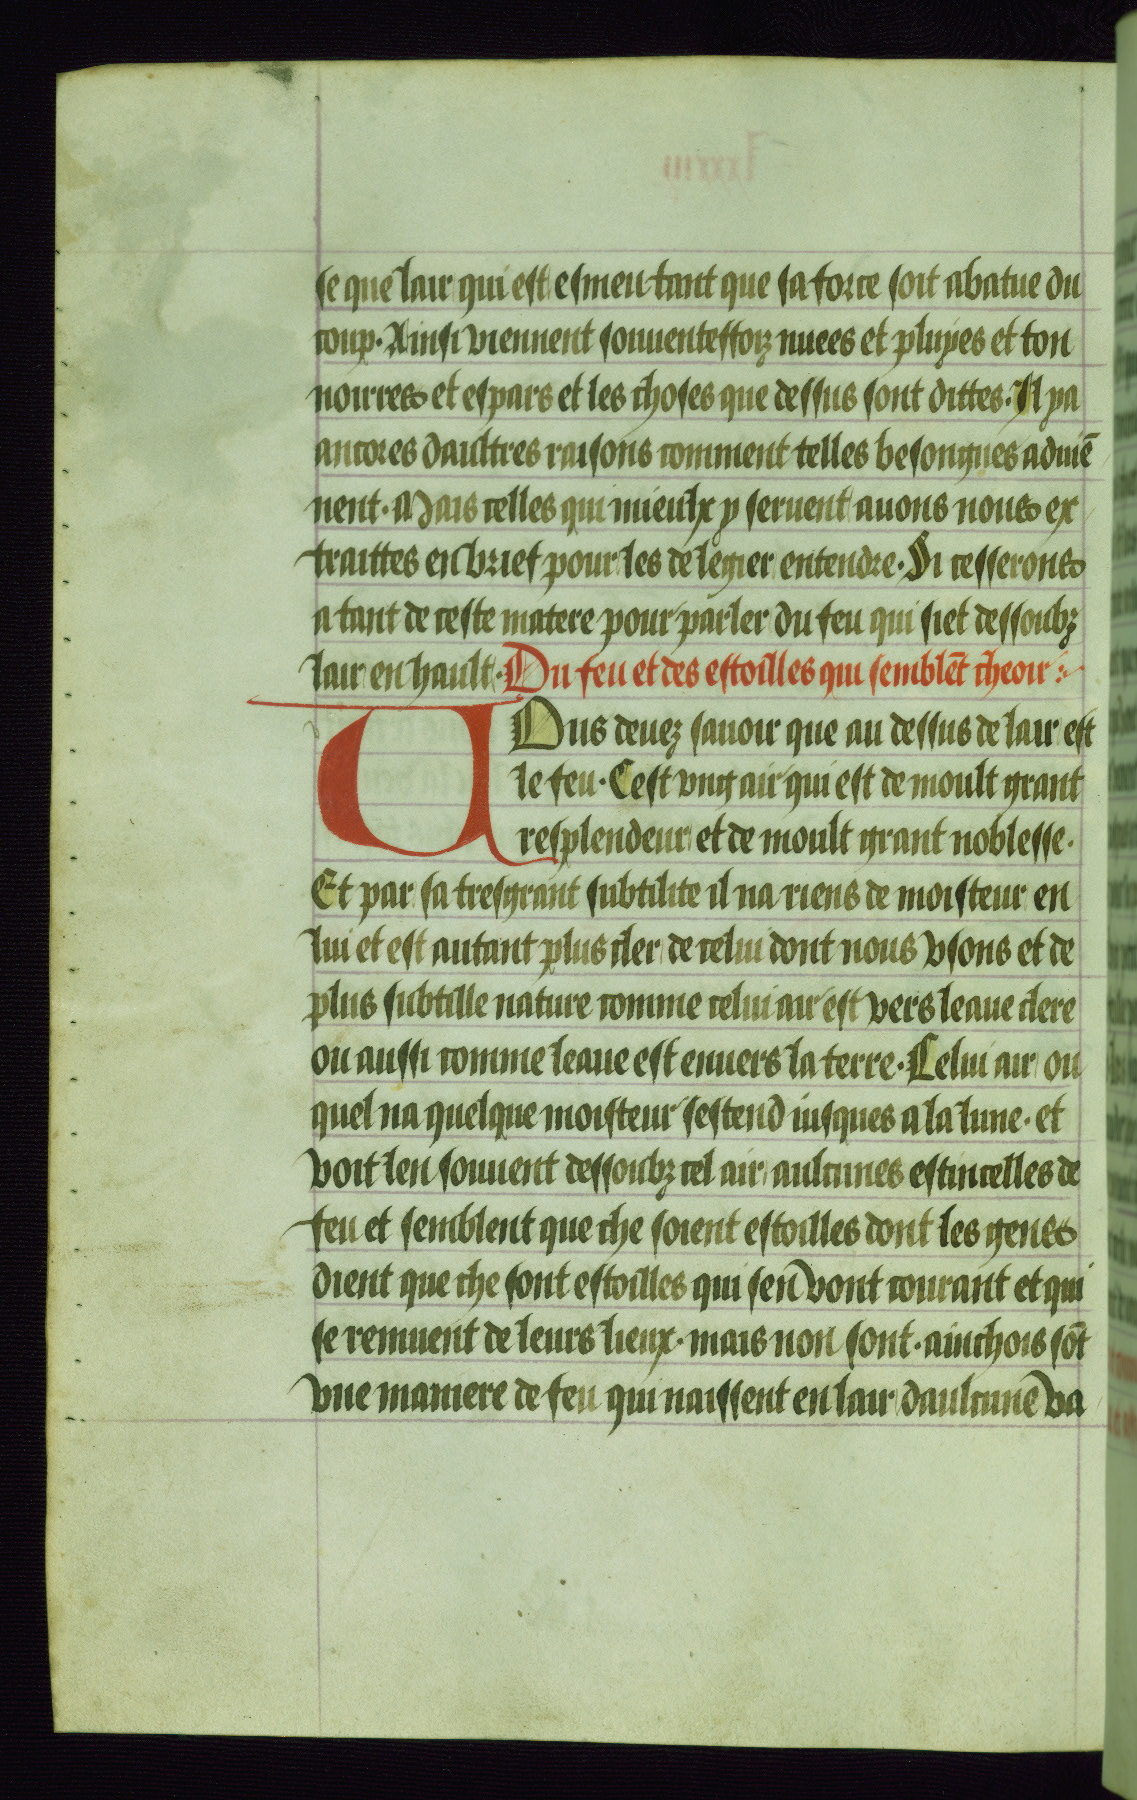 se que lair qui est esmeu tant que sa force soit abatue du
coup. Ainsi viennent souventeffoiz nuees et pluyes et ton
noirres et espars et les choses que dessus sont dittes. Il ya
ancores daultres raisons comment telles besongnes advie͞
nent. Mais celles qui mieulx y servent avons nous ex
traittes en brief pour les de legier entendre. Si cesserons
a tant de ceste matere pour parler du feu qui siet dessoubz
lair en hault. Du feu et des estoilles qui semble͞t cheoir
VOus devez savoir que au dessus de lair est
le feu. Cest ung air qui est de moult grant
resplendeur et de moult grant noblesse.
Et par sa tresgrant subtilite il na riens de moisteur en
lui et est autant plus cler de celui dont nous usons et de
plus subtille nature comme celui air est vers leaue clere
ou aussi comme leaue est envers la terre. Celui air ou
quel na quelque moisteur sestend iusques a la lune. et
voit len souvent dessoubz cel air aulcunes estincelles de
feu et semblent que che soient estoilles dont les gens
dient que che sont estoilles qui sen vont courant et qui
se remuent de leurs lieux. mais non sont. ainchois so͞t
une maniere de feu qui naissent en lair daulcune va